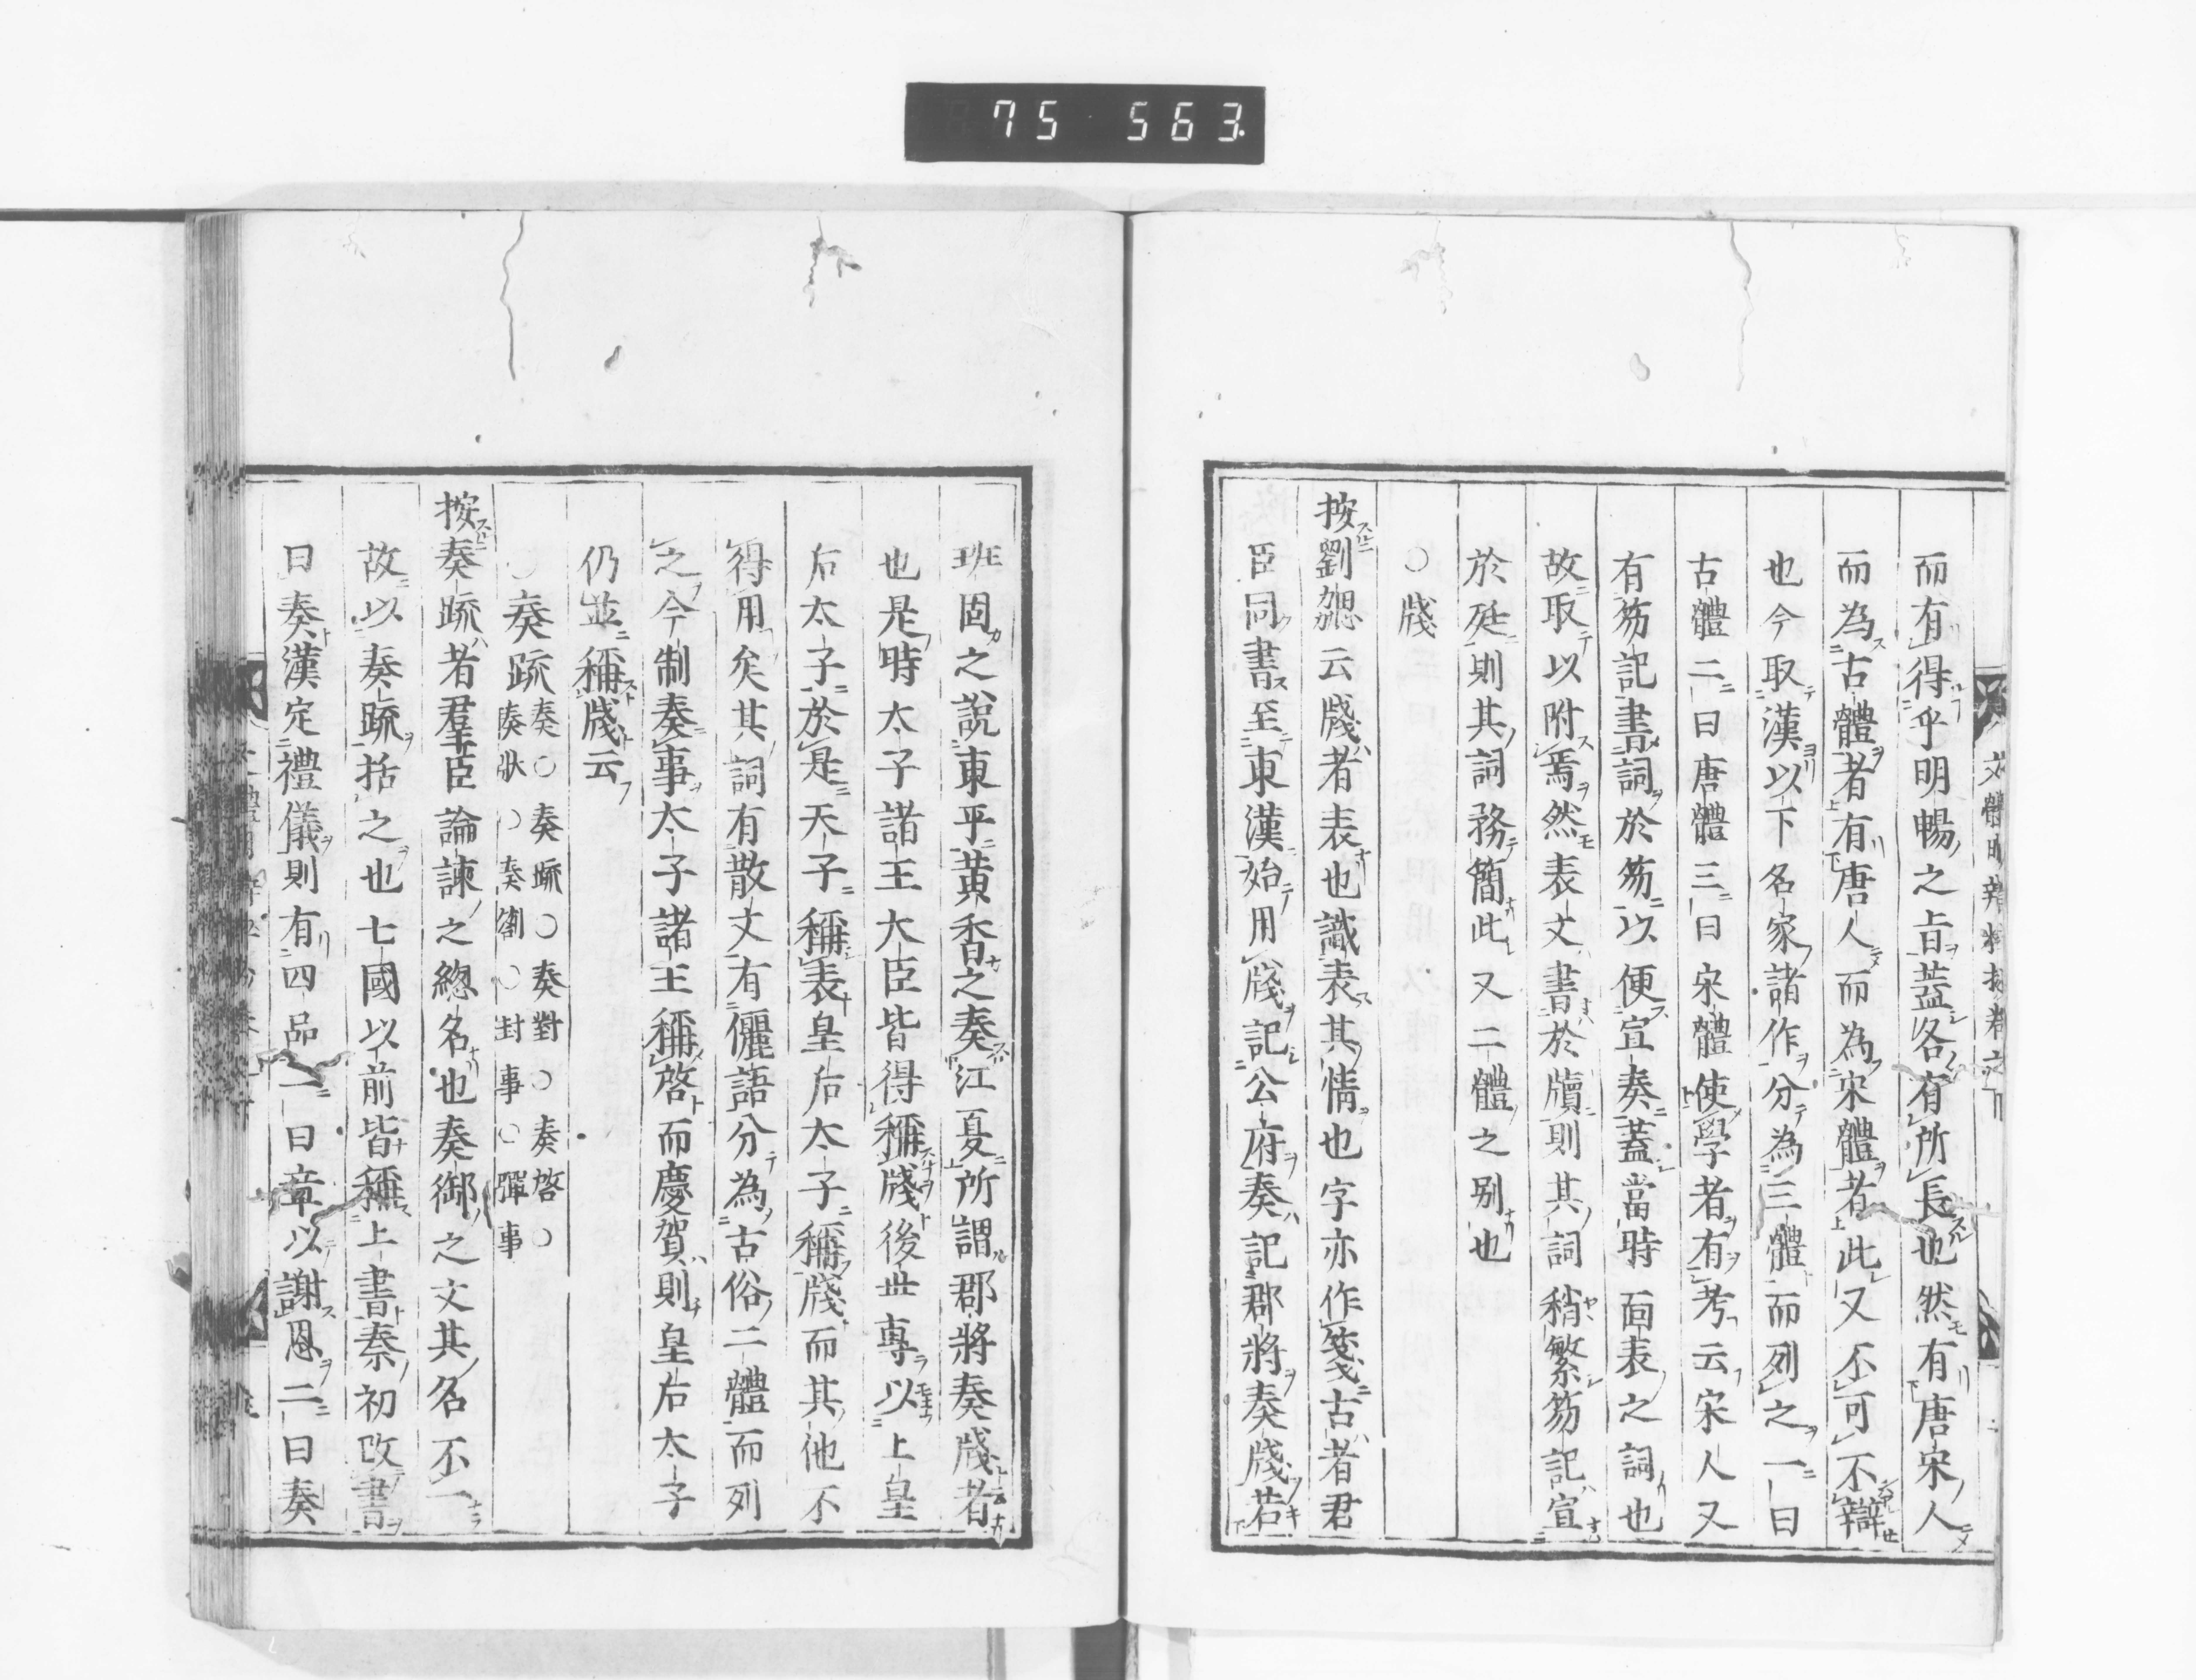 75 563
而有得乎明暢之旨蓋各有所長也然有唐宋人
而為古體者有唐人而為宋體者此又不可不辯
也今取漢以下名家諸作分為三體而列之一曰
古體二曰唐體三曰宋體使學者有考云宋人又
有笏記書詞於笏以便宣奏蓋當時面表之詞也
故取以附焉然表文書於牘則其詞稍繁笏記宣
於廷則其詞務簡此又二體之別也
○牋
按劉勰云牋者表也識表其情也字亦作箋古者君
臣同書至東漢始用牋記公府奏記郡將奏牋若
班固之說東平黃香之奏江夏所謂郡將奏牋者
也是時太子諸王大臣皆得稱牋後世專以上皇
后太子於是天子稱表皇后太子稱牋而其他不
得用矣其詞有散文有儷語分為古俗二體而列
之今制奏事太子諸王稱啓而慶賀則皇后太子
仍並稱牋云
○奏疏 奏○奏疏○奏對○奏啓○
奏狀○奏劄○封事○彈事
按奏疏者羣臣論諫之總名也奏御之文其名不一
故以奏疏括之也七國以前皆稱上書秦初改書
曰奏漢定禮儀則有四品一曰章以謝恩二曰奏